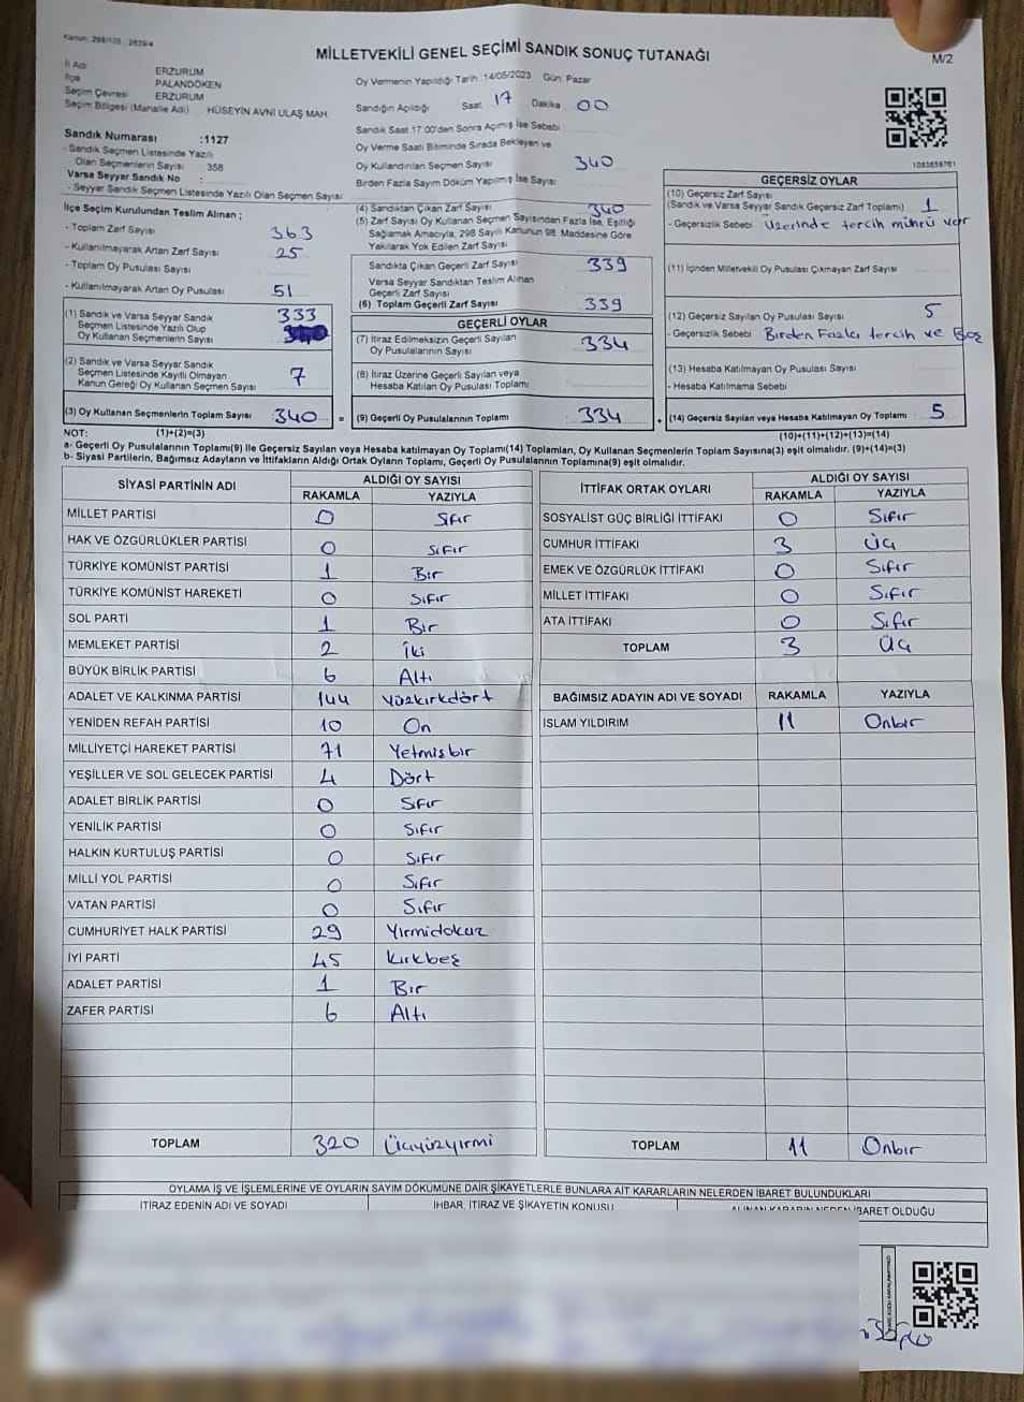 MİLLETVEKİLİ GENEL SEÇİMİ SANDIK SONUÇ TUTANAĞI
M/2
İl Adı ERZURUM
İlçe PALANDÖKEN
Seçim Çevresi ERZURUM
Seçim Bölgesi (Mahalle Adı) HÜSEYİN AVNİ ULAŞ MAH.
Sandık Numarası :1127
- Sandık Seçmen Listesinde Yazılı
Olan Seçmenlerin Sayısı 358
Varsa Seyyar Sandık No :
- Seyyar Sandık Seçmen Listesinde Yazılı Olan Seçmen Sayısı
İlçe Seçim Kurulundan Teslim Alınan ;
- Toplam Zarf Sayısı 363
- Kullanılmayarak Artan Zarf Sayısı 25
- Toplam Oy Pusulası Sayısı
- Kullanılmayarak Artan Oy Pusulası 51
(1) Sandık ve Varsa Seyyar Sandık 333
Seçmen Listesinde Yazılı Olup
Oy Kullanan Seçmenlerin Sayısı
(2) Sandık ve Varsa Seyyar Sandık
Seçmen Listesinde Kayıtlı Olmayan 7
Kanun Gereği Oy Kullanan Seçmen Sayısı
(3) Oy Kullanan Seçmenlerin Toplam Sayısı 340 =
Oy Vermenin Yapıldığı Tarih :14/05/2023 Gün: Pazar
Sandığın Açıldığı Saat 17 Dakika 00
Sandık Saat 17:00'den Sonra Açımış İse Sebebi
Oy Verme Saati Bitiminde Sırada Bekleyen ve
Oy Kullandırılan Seçmen Sayısı 340
Birden Fazla Sayım Döküm Yapılmış İse Sayısı
(4) Sandıktan Çıkan Zarf Sayısı 340
(5) Zarf Sayısı Oy Kullanan Seçmen Sayısından Fazla İse, Eşitliği
Sağlamak Amacıyla, 298 Sayılı Kanunun 98. Maddesine Göre
Yakılarak Yok Edilen Zarf Sayısı
Sandıkta Çıkan Geçerli Zarf Sayısı 339
Varsa Seyyar Sandıktan Teslim Alınan
Geçerli Zarf Sayısı
(6) Toplam Geçerli Zarf Sayısı 339
GEÇERLİ OYLAR
(7) İtiraz Edilmeksizin Geçerli Sayılan 334
Oy Pusulalarının Sayısı
(8) İtiraz Üzerine Geçerli Sayılan veya
Hesaba Katılan Oy Pusulası Toplamı
(9) Geçerli Oy Pusulalarının Toplamı 334
GEÇERSİZ OYLAR
(10) Geçersiz Zarf Sayısı
(Sandık ve Varsa Seyyar Sandık Geçersiz Zarf Toplamı) 1
- Geçersizlik Sebebi Üzerinde tercih mührü var
(11) İçinden Milletvekili Oy Pusulası Çıkmayan Zarf Sayısı
(12) Geçersiz Sayılan Oy Pusulası Sayısı 5
- Geçersizlik Sebebi Birden Fazla tercih ve Boş
(13) Hesaba Katılmayan Oy Pusulası Sayısı
- Hesaba Katılmama Sebebi
(14) Geçersiz Sayılan veya Hesaba Katılmayan Oy Toplamı 5
NOT: (1)+(2)=(3) (10)+(11)+(12)+(13)=(14)
a- Geçerli Oy Pusulalarının Toplamı(9) ile Geçersiz Sayılan veya Hesaba katılmayan Oy Toplamı(14) Toplamları, Oy Kullanan Seçmenlerin Toplam Sayısına(3) eşit olmalıdır. (9)+(14)=(3)
b- Siyasi Partilerin, Bağımsız Adayların ve İttifakların Aldığı Ortak Oyların Toplamı, Geçerli Oy Pusulalarının Toplamına(9) eşit olmalıdır.
SİYASİ PARTİNİN ADI ALDIĞI OY SAYISI
RAKAMLA YAZIYLA
MİLLET PARTİSİ 0 Sıfır
HAK VE ÖZGÜRLÜKLER PARTİSİ 0 Sıfır
TÜRKİYE KOMÜNİST PARTİSİ 1 Bir
TÜRKİYE KOMÜNİST HAREKETİ 0 Sıfır
SOL PARTİ 1 Bir
MEMLEKET PARTİSİ 2 İki
BÜYÜK BİRLİK PARTİSİ 6 Altı
ADALET VE KALKINMA PARTİSİ 144 Yüzkırkdört
YENİDEN REFAH PARTİSİ 10 On
MİLLİYETÇİ HAREKET PARTİSİ 71 Yetmişbir
YEŞİLLER VE SOL GELECEK PARTİSİ 4 Dört
ADALET BİRLİK PARTİSİ 0 Sıfır
YENİLİK PARTİSİ 0 Sıfır
HALKIN KURTULUŞ PARTİSİ 0 Sıfır
MİLLİ YOL PARTİSİ 0 Sıfır
VATAN PARTİSİ 0 Sıfır
CUMHURİYET HALK PARTİSİ 29 Yirmidokuz
İYİ PARTİ 45 Kırkbeş
ADALET PARTİSİ 1 Bir
ZAFER PARTİSİ 6 Altı
TOPLAM 320 Üçyüzyirmi
İTTİFAK ORTAK OYLARI ALDIĞI OY SAYISI
RAKAMLA YAZIYLA
SOSYALİST GÜÇ BİRLİĞİ İTTİFAKI 0 Sıfır
CUMHUR İTTİFAKI 3 Üç
EMEK VE ÖZGÜRLÜK İTTİFAKI 0 Sıfır
MİLLET İTTİFAKI 0 Sıfır
ATA İTTİFAKI 0 Sıfır
TOPLAM 3 Üç
BAĞIMSIZ ADAYIN ADI VE SOYADI RAKAMLA YAZIYLA
İSLAM YILDIRIM 11 Onbir
TOPLAM 11 Onbir
OYLAMA İŞ VE İŞLEMLERİNE VE OYLARIN SAYIM DÖKÜMÜNE DAİR ŞİKAYETLERLE BUNLARA AİT KARARLARIN NELERDEN İBARET BULUNDUKLARI
İTİRAZ EDENİN ADI VE SOYADI İHBAR, İTİRAZ VE ŞİKAYETİN KONUSU İBARET OLDUĞU